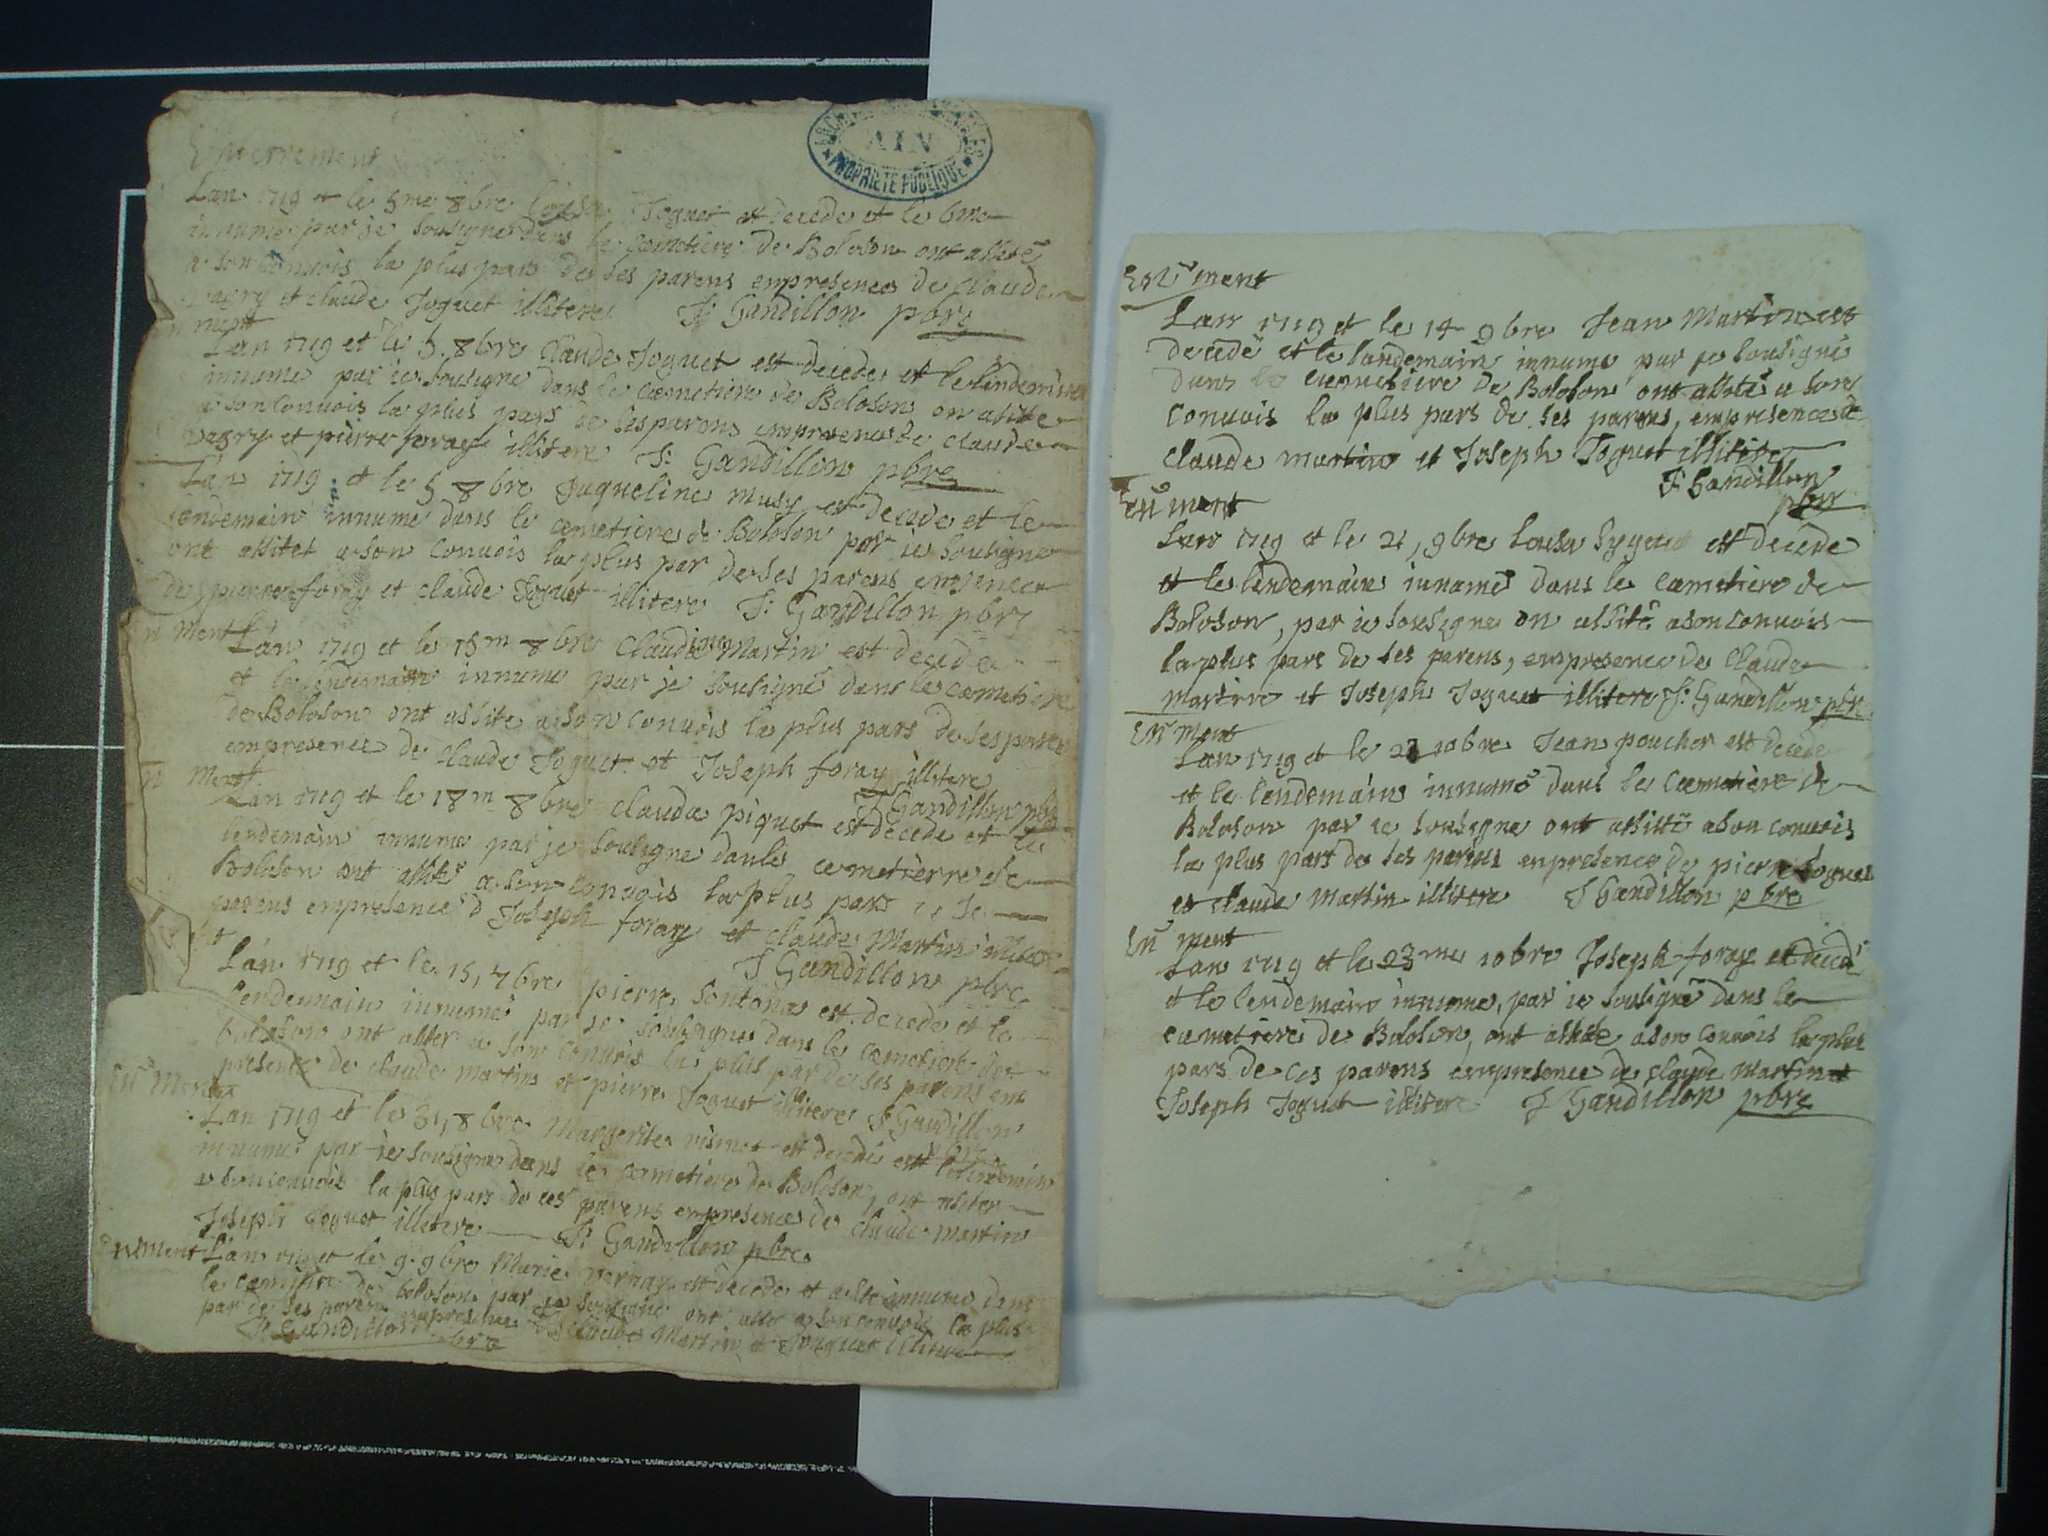 Enterrement
ARCHIVES
AIN
PROPRIETE PUBLIQUE
Lan 1719 et le 5me 8bre Joguet est decede et le 6me
innume par je sousigne dans le cemetiere de Boloson ont assite
a son convois la plus pars de ses parens empresences de claude
vagry et claude Joguet illitere J: Gandillon pbre
ment
Lan 1719 et le 5. 8bre Claude Joguet est decede et le lendemain
innume par ie sousigne dans le cemetiere de Boloson on assite
a son convois la plus pars de ses parens empresence de claude
vagry et pierre foray illitere J: Gandillon pbre
Lan 1719 et le 5 8bre Juqueline musy est decede et le
lendemain innume dans le cemetiere de Boloson par ie sousigne
ont assitet a son convois la plus par de ses parens
de pierre foray et claude Joguet illitere J: Gandillon pbre
ment Lan 1719 et le 15m 8bre Claudine Martin est decede
et le lendemain innume par je sousigné dans le cemetiere
de Boloson ont assite a son convois la plus pars de ses parens
empresence de claude Joguet et Joseph foray illitere
J Gandillon pbre
n ment
Lan 1719 et le 18m 8bre clauda piquet est decede et le
lendemain innume par je sousigne dans le cemetierre de
Boloson ont assité a son convois la plus pars de se
parens empresence d Joseph foray et claude Martin illitere
J Gandillon pbre
Lan 1719 et le 15, 7bre pierre Sontona est decede et le
lendemain inumé par je sousigne dans le cemetiere de
boloson ont assiter a son convois la plus par de ses parens en
presence de claude martin et pierre Joguet illitere J Gandillon
pbre
En ment
Lan 1719 et le 31, 8bre Margerite est decede et lelindemin
innumé par ie sousigne dans le cemetiere de Boloson, ont assiter
a son convois la plus pars de ces parens empresences de claude martin
Joseph Joguet illitere J: Gandillon pbre
nement Lan 1719 et le 9. 9bre Marie vernay est decede et innume dans
le cemitire de boloson par je sousigne ont assite a son convois la plus
par de ses parens empresence de claude Martin et Joguet illitere
J: Gandillon pbre
En ment
Lan 1719 et le 14 9bre Jean Martin est
decedé et le landemain innumé par je sousigné
dans le cemetiere de Boloson ont assité a son
convois la plus pars de ses parens, empresence de
claude martin et Joseph Joguet illitere
J Gandillon
pbre
en ment
Lan 1719 et le 21, 9bre est decede
et le lendemain innumé dans le cemetiere de
Boloson, par ie sousigne on assité a son convois
la plus pars de ses parens, empresence de Claude
martin et Joseph Joguet illitere J: Gandillon pbre
En ment
Lan 1719 et le 10bre Jean poucher est decede
et le lendemain innumé dans le cemetiere de
Boloson par ie sousigne ont assitté a son convois
la plus part de ses parens enpresence de pierre Joguet
et claude Martin illitere J Gandillon pbre
En ment
Lan 1719 et le 23me 10bre Joseph foray et decedé
et le lendemain innume, par ie sousigné dans le
cemetiere de Boloson, ont assite a son convois la plus
pars de ces parens empresence de claude martin et
Joseph Joguet illitere J Gandillon pbre